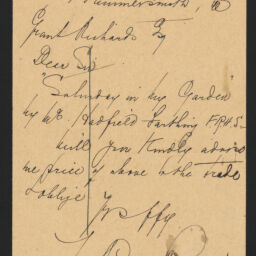 Hammersmith, W
Grant Richards Esq
Dear Sir
"Saturday in my Garden"
by Mr. Hadfield Farthing F.R.H.S.
will you kindly advise
me price of above also trade
& oblige
Yrs ffy